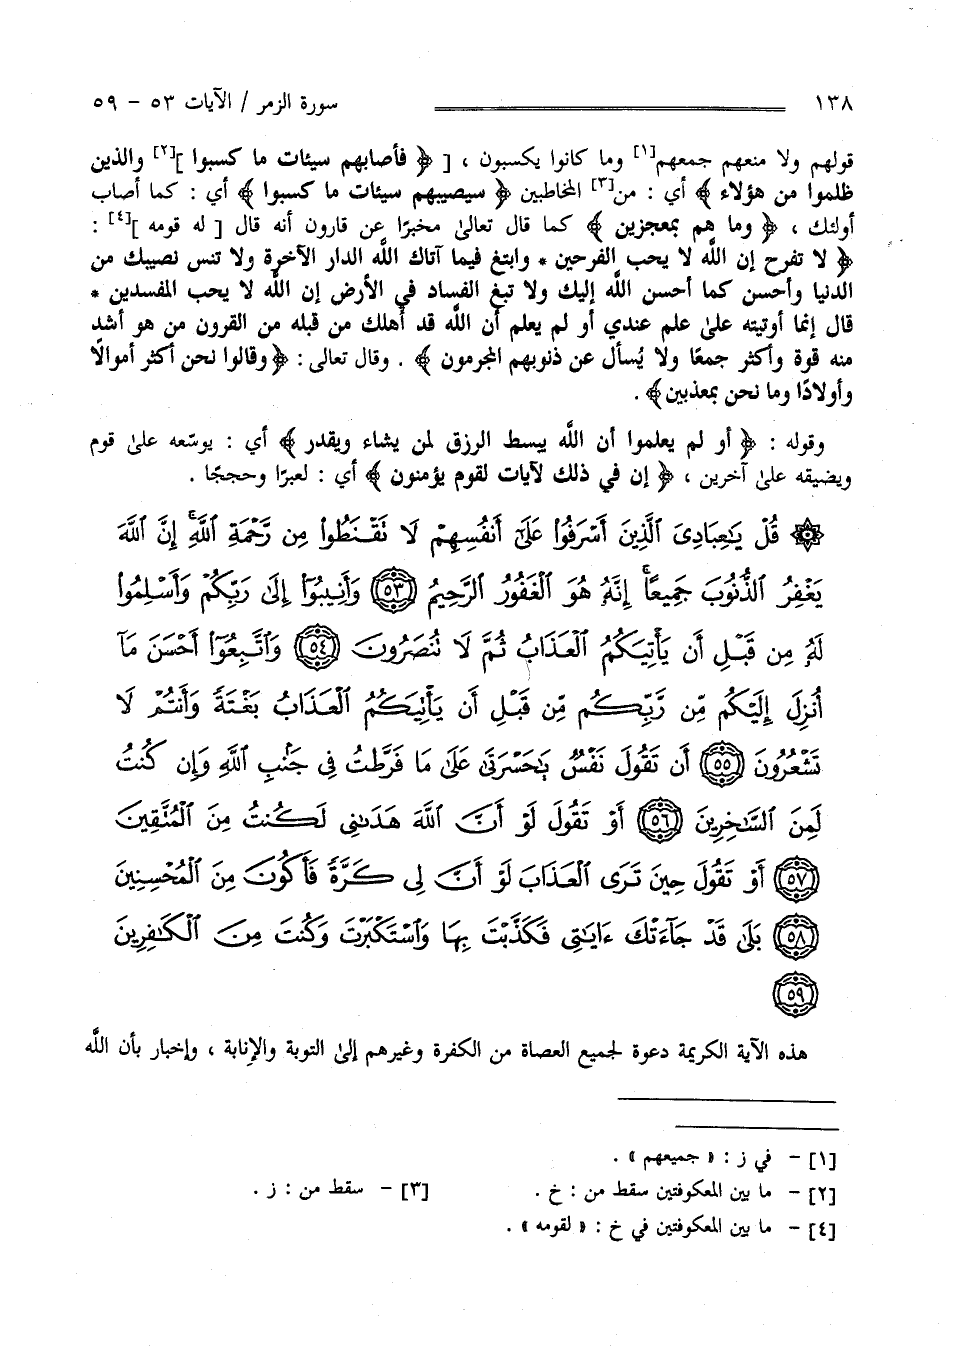 ١٣٨ سورة الزمر / الآيات ٥٣ – ٥٩
قولهم ولا منعهم جمعهم[١] وما كانوا يكسبون ، [ ﴿ فأصابهم سيئات ما كسبوا ][٢] والذين
ظلموا من هؤلاء ﴾ أي : من[٣] المخاطبين ﴿ سيصيبهم سيئات ما كسبوا ﴾ أي : كما أصاب
أولئك ، ﴿ وما هم بمعجزين ﴾ كما قال تعالىٰ مخبرًا عن قارون أنه قال [ له قومه ][٤] :
﴿ لا تفرح إن اللَّه لا يحب الفرحين * وابتغ فيما آتاك اللَّه الدار الآخرة ولا تنس نصيبك من
الدنيا وأحسن كما أحسن اللَّه إليك ولا تبغ الفساد في الأرض إن اللَّه لا يحب المفسدين *
قال إنما أوتيته علىٰ علم عندي أو لم يعلم أن اللَّه قد أهلك من قبله من القرون من هو أشد
منه قوة وأكثر جمعًا ولا يُسأل عن ذنوبهم المجرمون ﴾ . وقال تعالى : ﴿ وقالوا نحن أكثر أموالًا
وأولادًا وما نحن بمعذبين ﴾ .
وقوله : ﴿ أو لم يعلموا أن اللَّه يبسط الرزق لمن يشاء ويقدر ﴾ أي : يوسّعه علىٰ قوم
ويضيقه علىٰ آخرين ، ﴿ إن في ذلك لآيات لقوم يؤمنون ﴾ أي : لعبرًا وحججًا .
۞ قُلْ يَٰعِبَادِىَ ٱلَّذِينَ أَسْرَفُوا۟ عَلَىٰٓ أَنفُسِهِمْ لَا تَقْنَطُوا۟ مِن رَّحْمَةِ ٱللَّهِ ۚ إِنَّ ٱللَّهَ
يَغْفِرُ ٱلذُّنُوبَ جَمِيعًا ۚ إِنَّهُۥ هُوَ ٱلْغَفُورُ ٱلرَّحِيمُ ٥٣ وَأَنِيبُوٓا۟ إِلَىٰ رَبِّكُمْ وَأَسْلِمُوا۟
لَهُۥ مِن قَبْلِ أَن يَأْتِيَكُمُ ٱلْعَذَابُ ثُمَّ لَا تُنصَرُونَ ٥٤ وَٱتَّبِعُوٓا۟ أَحْسَنَ مَآ
أُنزِلَ إِلَيْكُم مِّن رَّبِّكُم مِّن قَبْلِ أَن يَأْتِيَكُمُ ٱلْعَذَابُ بَغْتَةً وَأَنتُمْ لَا
تَشْعُرُونَ ٥٥ أَن تَقُولَ نَفْسٌ يَٰحَسْرَتَىٰ عَلَىٰ مَا فَرَّطتُ فِى جَنۢبِ ٱللَّهِ وَإِن كُنتُ
لَمِنَ ٱلسَّٰخِرِينَ ٥٦ أَوْ تَقُولَ لَوْ أَنَّ ٱللَّهَ هَدَىٰنِى لَكُنتُ مِنَ ٱلْمُتَّقِينَ
٥٧ أَوْ تَقُولَ حِينَ تَرَى ٱلْعَذَابَ لَوْ أَنَّ لِى كَرَّةً فَأَكُونَ مِنَ ٱلْمُحْسِنِينَ
٥٨ بَلَىٰ قَدْ جَآءَتْكَ ءَايَٰتِى فَكَذَّبْتَ بِهَا وَٱسْتَكْبَرْتَ وَكُنتَ مِنَ ٱلْكَٰفِرِينَ
٥٩
هذه الآية الكريمة دعوة لجميع العصاة من الكفرة وغيرهم إلىٰ التوبة والإنابة ، وإخبار بأن اللَّه
[١] – في ز : « جميعهم » .
[٢] – ما بين المعكوفتين سقط من : خ . [٣] – سقط من : ز .
[٤] – ما بين المعكوفتين في خ : « لقومه » .